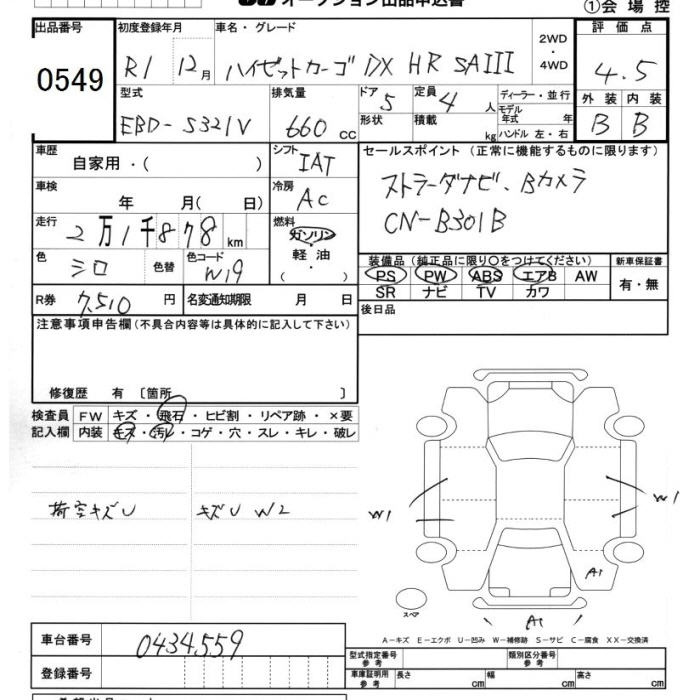 オークション出品申込書
①会場控
出品番号 0549
初度登録年月 R1 12月
車名・グレード ハイゼットカーゴ DX HR SAIII
2WD・4WD
評価点 4.5
外装 B 内装 B
型式 EBD-S321V
排気量 660 cc
ドア 5 形状
定員 4 人 積載 kg
ディーラー・並行
モデル年式 年
ハンドル 左・右
車歴 自家用・( )
シフト IAT
車検 年 月( 日)
冷房 AC
走行 2万1千878 km
燃料 ガソリン・軽油・( )
色 シロ 色替 色コード W19
R券 7,510 円 名変通知期限 月 日
セールスポイント (正常に機能するものに限ります)
ストラーダナビ、Bカメラ
CN-B301B
装備品 (純正品に限り○をつけてください) 新車保証書
PS PW ABS エアB AW 有・無
SR ナビ TV カワ
後日品
注意事項申告欄 (不具合内容等は具体的に記入して下さい)
修復歴 有 〔箇所 〕
検査員 FW キズ・飛石・ヒビ割・リペア跡・×要
記入欄 内装 キズ・汚レ・コゲ・穴・スレ・キレ・破レ
荷室キズU キズU W2
W1 W1
A1
スペア
A1
A-キズ E-エクボ U-凹み W-補修跡 S-サビ C-腐食 XX-交換済
車台番号 0434559
登録番号
型式指定番号 参考 類別区分番号 参考
車庫証明用 参考 長さ cm 幅 cm 高さ cm